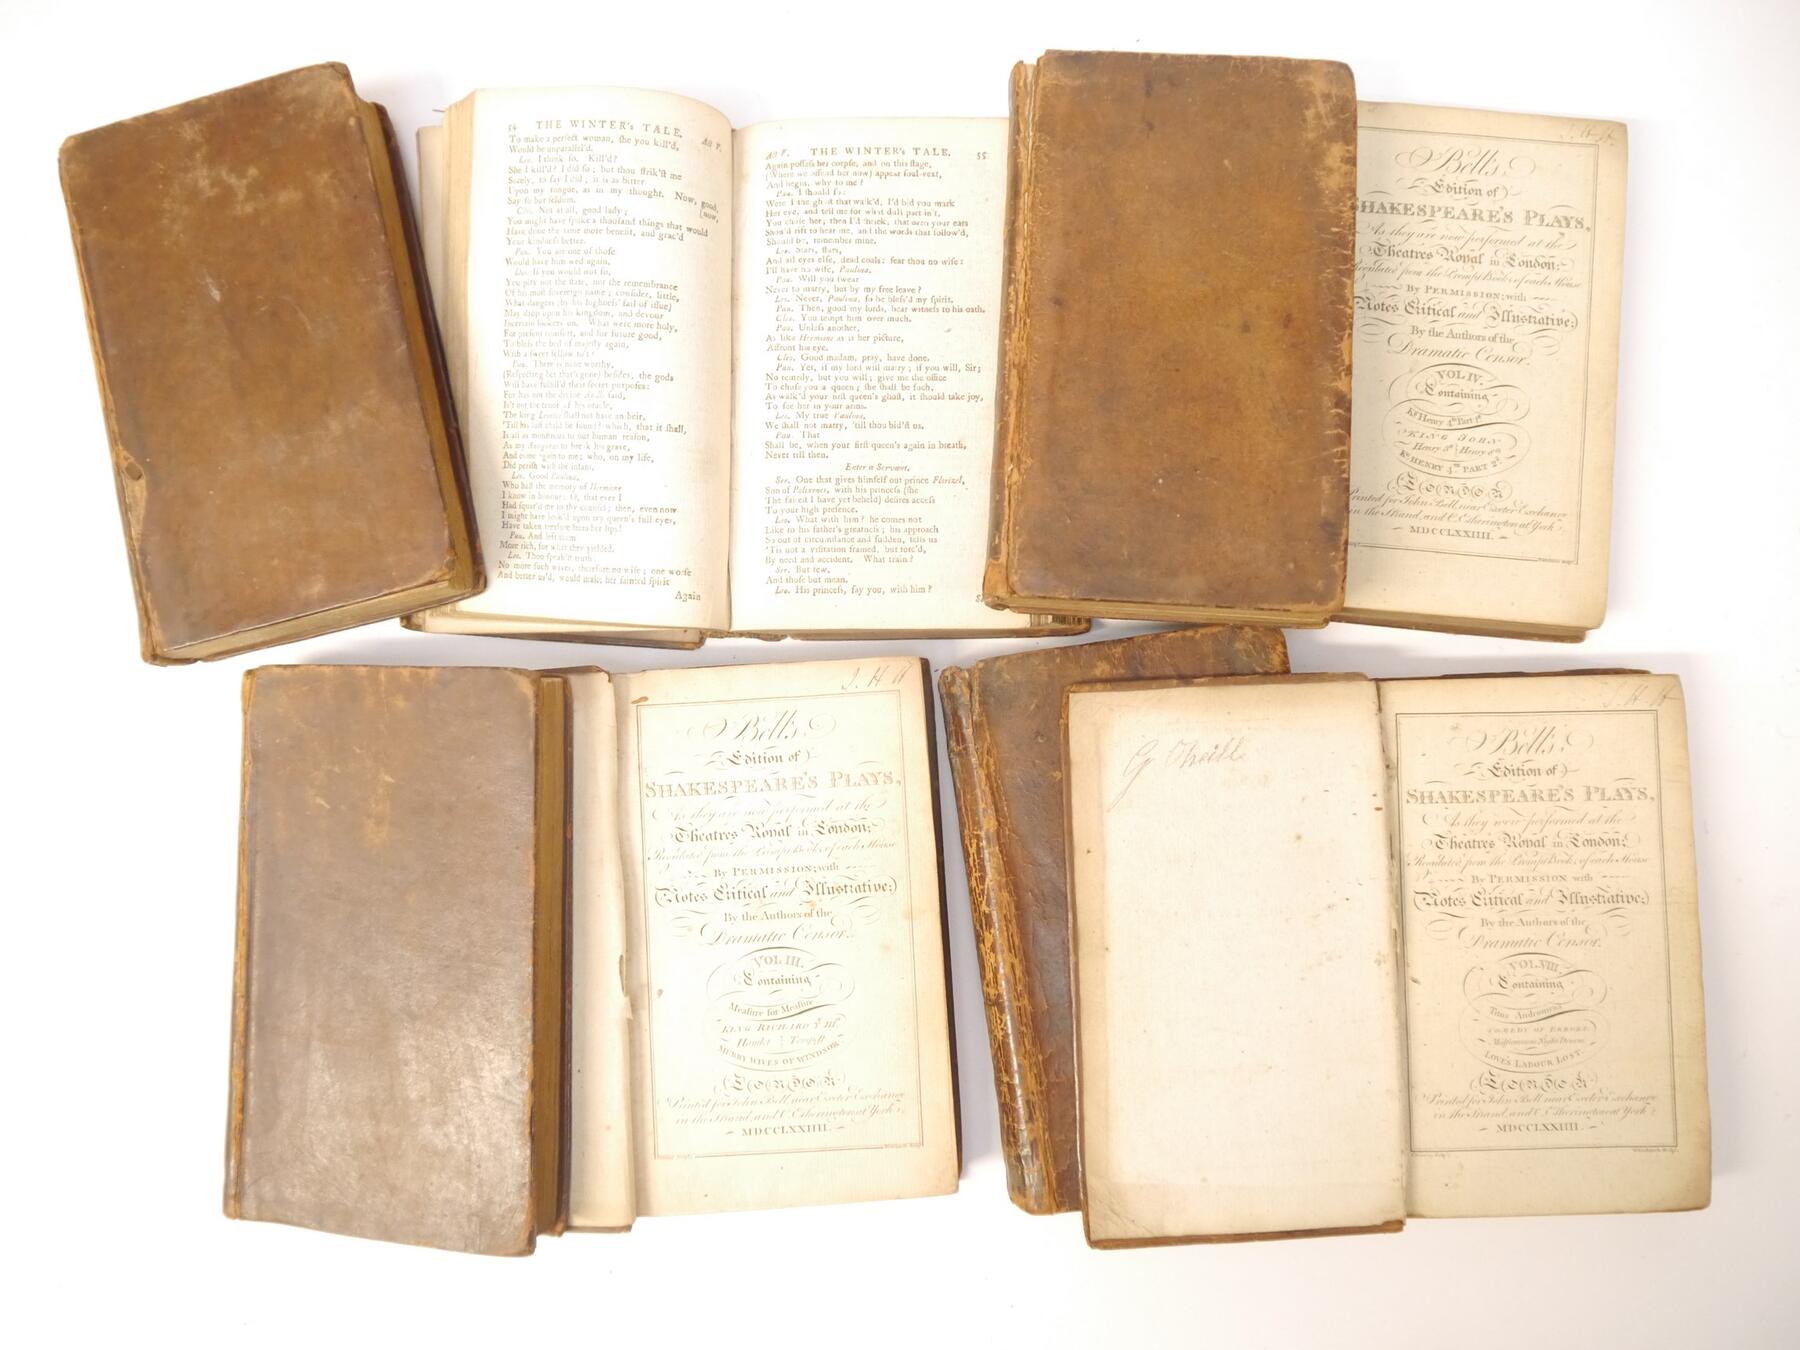 54 THE WINTER's TALE. Act V.
To make a perfect woman, she you kill'd,
Would be unparallel'd.
Leo. I think so. Kill'd?
She I kill'd? I did so; but thou strik'st me
Sorely, to say I did; it is as bitter
Upon my tongue, as in my thought. Now, good,
Say so but seldom. (now,
Cleo. Not at all, good lady;
You might have spoke a thousand things that would
Have done the time more benefit, and grac'd
Your kindness better.
Pau. You are one of those
Would have him wed again.
Dio. If you would not so,
You pity not the state, nor the remembrance
Of his most sovereign name; consider, little,
What dangers (by his highness' fail of issue)
May drop upon his kingdom, and devour
Incertain lookers on. What were more holy,
For present comfort, and for future good,
To bless the bed of majesty again,
With a sweet fellow to't?
Pau. There is none worthy,
(Respecting her that's gone) besides, the gods
Will have fulfill'd their secret purposes:
For has not the divine Apollo said,
Is't not the tenor of his oracle,
The king Leontes shall not have an heir,
'Till his lost child be found? which, that it shall,
Is all as monstrous to our human reason,
As my Antigonus to break his grave,
And come again to me; who, on my life,
Did perish with the infant.
Leo. Good Paulina,
Who hast the memory of Hermione
I know in honour: O, that ever I
Had squar'd me to thy counsel; then, even now
I might have look'd upon my queen's full eyes,
Have taken treasure from her lips!
Pau. And left them
More rich, for what they yielded.
Leo. Thou speak'st truth:
No more such wives, therefore no wife; one worse
And better us'd, would make her sainted spirit
Again
Act V. THE WINTER's TALE. 55
Again possess her corpse, and on this stage,
(Where we offend her now) appear soul-vext,
And begin, why to me?
Pau. I should so:
Were I the ghost that walk'd, I'd bid you mark
Her eye, and tell me for what dull part in't,
You chose her; then I'd shriek, that even your ears
Shou'd rift to hear me, and the words that follow'd,
Should be, remember mine.
Leo. Stars, stars,
And all eyes else, dead coals: fear thou no wife:
I'll have no wife, Paulina.
Pau. Will you swear
Never to marry, but by my free leave?
Leo. Never, Paulina, so be bless'd my spirit.
Pau. Then, good my lords, bear witness to his oath.
Cleo. You tempt him over much.
Pau. Unless another,
As like Hermione as is her picture,
Affront his eye.
Cleo. Good madam, pray, have done.
Pau. Yet, if my lord will marry; if you will, Sir;
No remedy, but you will; give me the office
To chuse you a queen; she shall be such,
As walk'd your first queen's ghost, it should take joy,
To see her in your arms.
Leo. My true Paulina,
We shall not marry, 'till thou bid'st us.
Pau. That
Shall be, when your first queen's again in breath,
Never till then.
Enter a Servant.
Ser. One that gives himself out prince Florizel,
Son of Polixenes, with his princess (she
The fairest I have yet beheld) desires access
To your high presence.
Leo. What with him? he comes not
Like to his father's greatness; his approach
So out of circumstance and sudden, tells us
'Tis not a visitation framed, but forc'd,
By need and accident. What train?
Ser. But few,
And those but mean.
Leo. His princess, say you, with him?
J. H H
Bell's
Edition of
SHAKESPEARE'S PLAYS,
As they are now performed at the
Theatres Royal in London;
Regulated from the Prompt Books of each House
By PERMISSION; with
Notes Critical and Illustrative;
By the Authors of the
Dramatic Censor.
VOL IV.
Containing
Kg Henry 4th Part 1st
KING JOHN
Henry 5th Henry 8th
Kg HENRY 4TH PART 2d
LONDON
Printed for John Bell near Exeter Exchange
in the Strand, and C. Etherington at York
MDCCLXXIIII.
J. H H
Bell's
Edition of
SHAKESPEARE'S PLAYS,
As they are now performed at the
Theatres Royal in London;
Regulated from the Prompt Books of each House
By PERMISSION; with
Notes Critical and Illustrative;
By the Authors of the
Dramatic Censor.
VOL III.
Containing
Measure for Measure
KING RICHARD ye IIId
Hamlet Tempest
MERRY WIVES OF WINDSOR
LONDON
Printed for John Bell near Exeter Exchange
in the Strand, and C. Etherington at York
MDCCLXXIIII.
J. H H
Bell's
Edition of
SHAKESPEARE'S PLAYS,
As they were performed at the
Theatres Royal in London;
Regulated from the Prompt Books of each House
By PERMISSION with
Notes Critical and Illustrative;
By the Authors of the
Dramatic Censor.
VOL. VIII.
Containing
Titus Andronicus
COMEDY OF ERRORS
Midsummer Night's Dream
LOVE'S LABOUR LOST.
LONDON
Printed for John Bell near Exeter Exchange
in the Strand, and C. Etherington at York
MDCCLXXIIII.